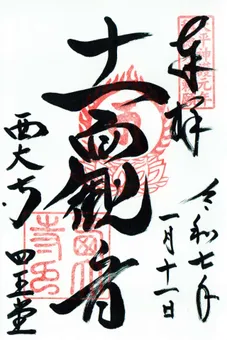 奉拝
令和七年
一月十一日
十一面観音
西大寺
四王堂